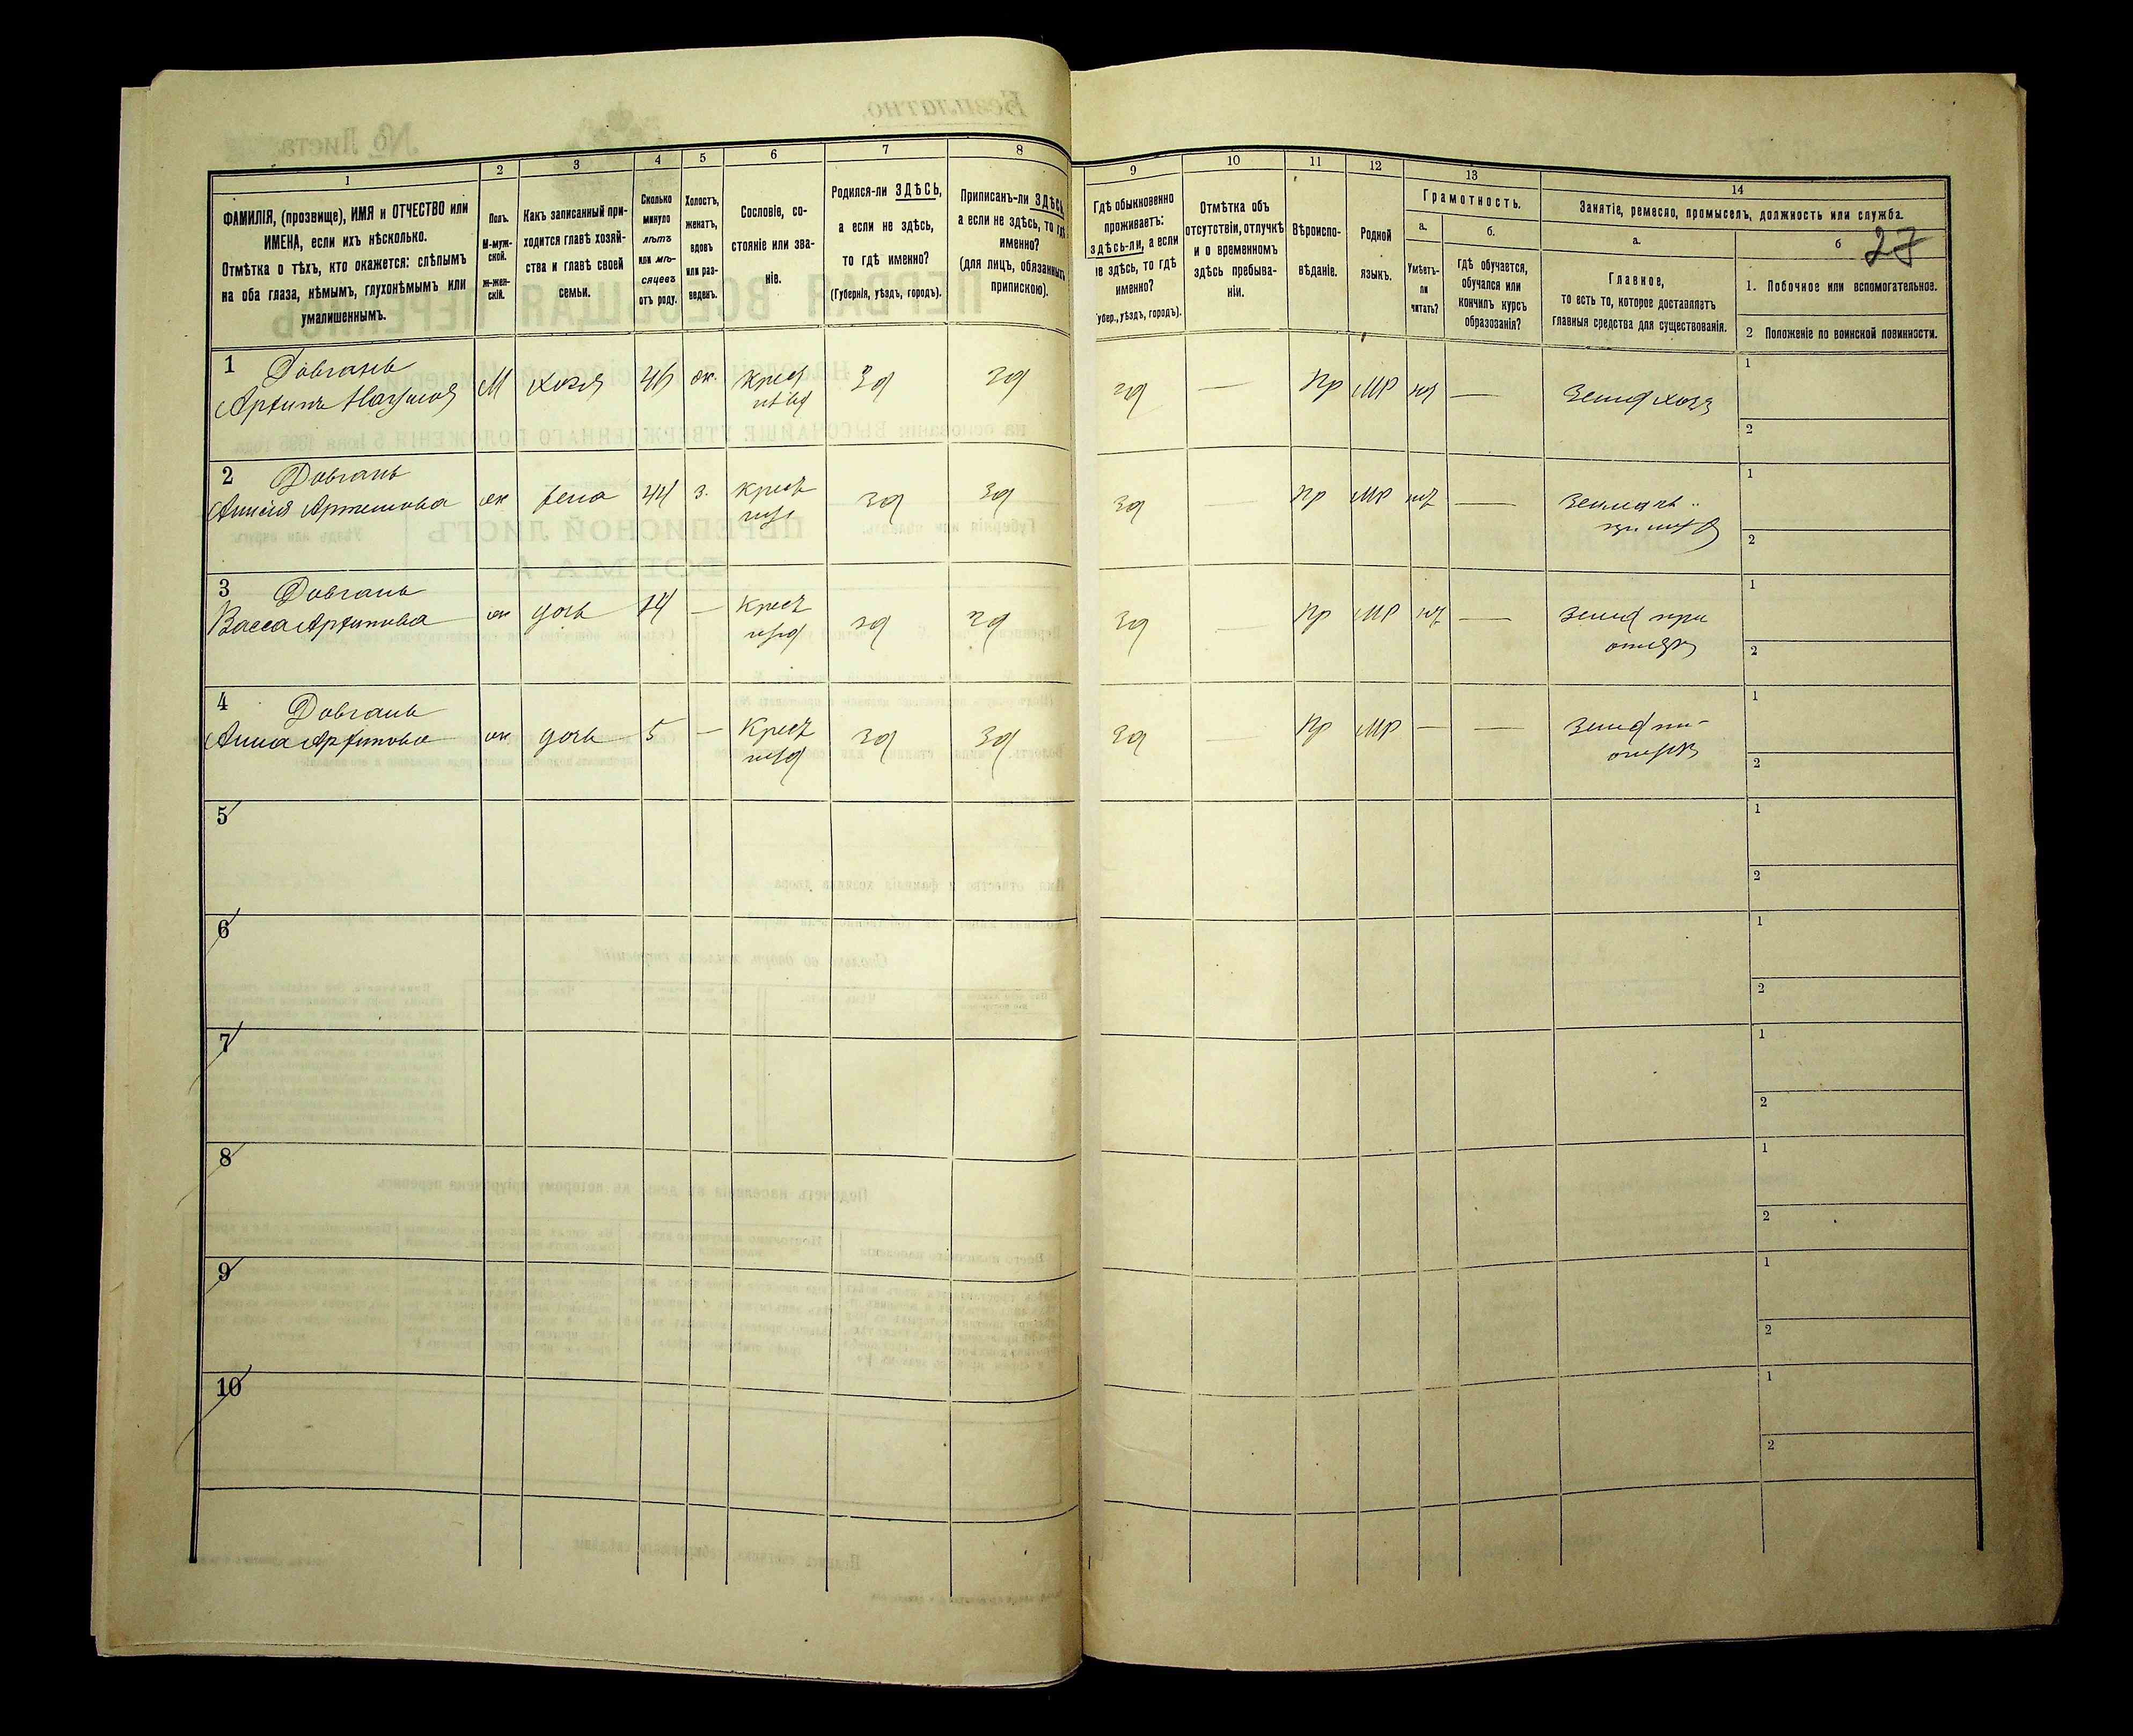 Безплатно.
№ Листа
1
2
3
4
5
6
7
8
ФАМИЛІЯ, (прозвище), ИМЯ и ОТЧЕСТВО или
ИМЕНА, если ихъ нѣсколько.
Отмѣтка о тѣхъ, кто окажется: слѣпымъ
на оба глаза, нѣмымъ, глухонѣмымъ или
умалишеннымъ.
Полъ.
М-муж-
ской.
ж-жен-
скій.
Какъ записанный при-
ходится главѣ хозяй-
ства и главѣ своей
семьи.
Сколько
минуло
лѣтъ
или мѣ-
сяцевъ
отъ роду.
Холостъ,
женатъ,
вдовъ
или раз-
веденъ.
Сословіе, со-
стояніе или зва-
ніе.
Родился-ли ЗДѢСЬ,
а если не здѣсь,
то гдѣ именно?
(Губернія, уѣздъ, городъ).
Приписанъ-ли ЗДѢСЬ,
а если не здѣсь, то гдѣ
именно?
(для лицъ, обязанныхъ
припискою).
9
10
11
12
13
14
Гдѣ обыкновенно
проживаетъ:
здѣсь-ли, а если
не здѣсь, то гдѣ
именно?
(Губер., уѣздъ, городъ).
Отмѣтка объ
отсутствіи, отлучкѣ
и о временномъ
здѣсь пребыва-
ніи.
Вѣроиспо-
вѣданіе.
Родной
языкъ.
Грамотность.
а.
Умѣетъ-
ли
читать?
б.
Гдѣ обучается,
обучался или
кончилъ курсъ
образованія?
Занятіе, ремесло, промыселъ, должность или служба.
а.
Главное,
то есть то, которое доставляетъ
главныя средства для существованія.
б
27
1. Побочное или вспомогательное.
2 Положеніе по воинской повинности.
1 Довгань
М хозя 46 ж. зд зд зд — Пр МР — Земл хозя
1
2
2 Довгань
Артемова ж жена 44 з. крест зд зд зд — Пр МР —
1
2
3 Довгань
Васса Артимова ж дочь 14 — крест зд зд зд — Пр МР — Земл при
отцѣ
1
2
4 Довгань
Анна Артимова ж дочь 5 — крест зд зд зд — Пр МР — — Земл
1
2
5
1
2
6
1
2
7
1
2
8
1
2
9
1
2
10
1
2